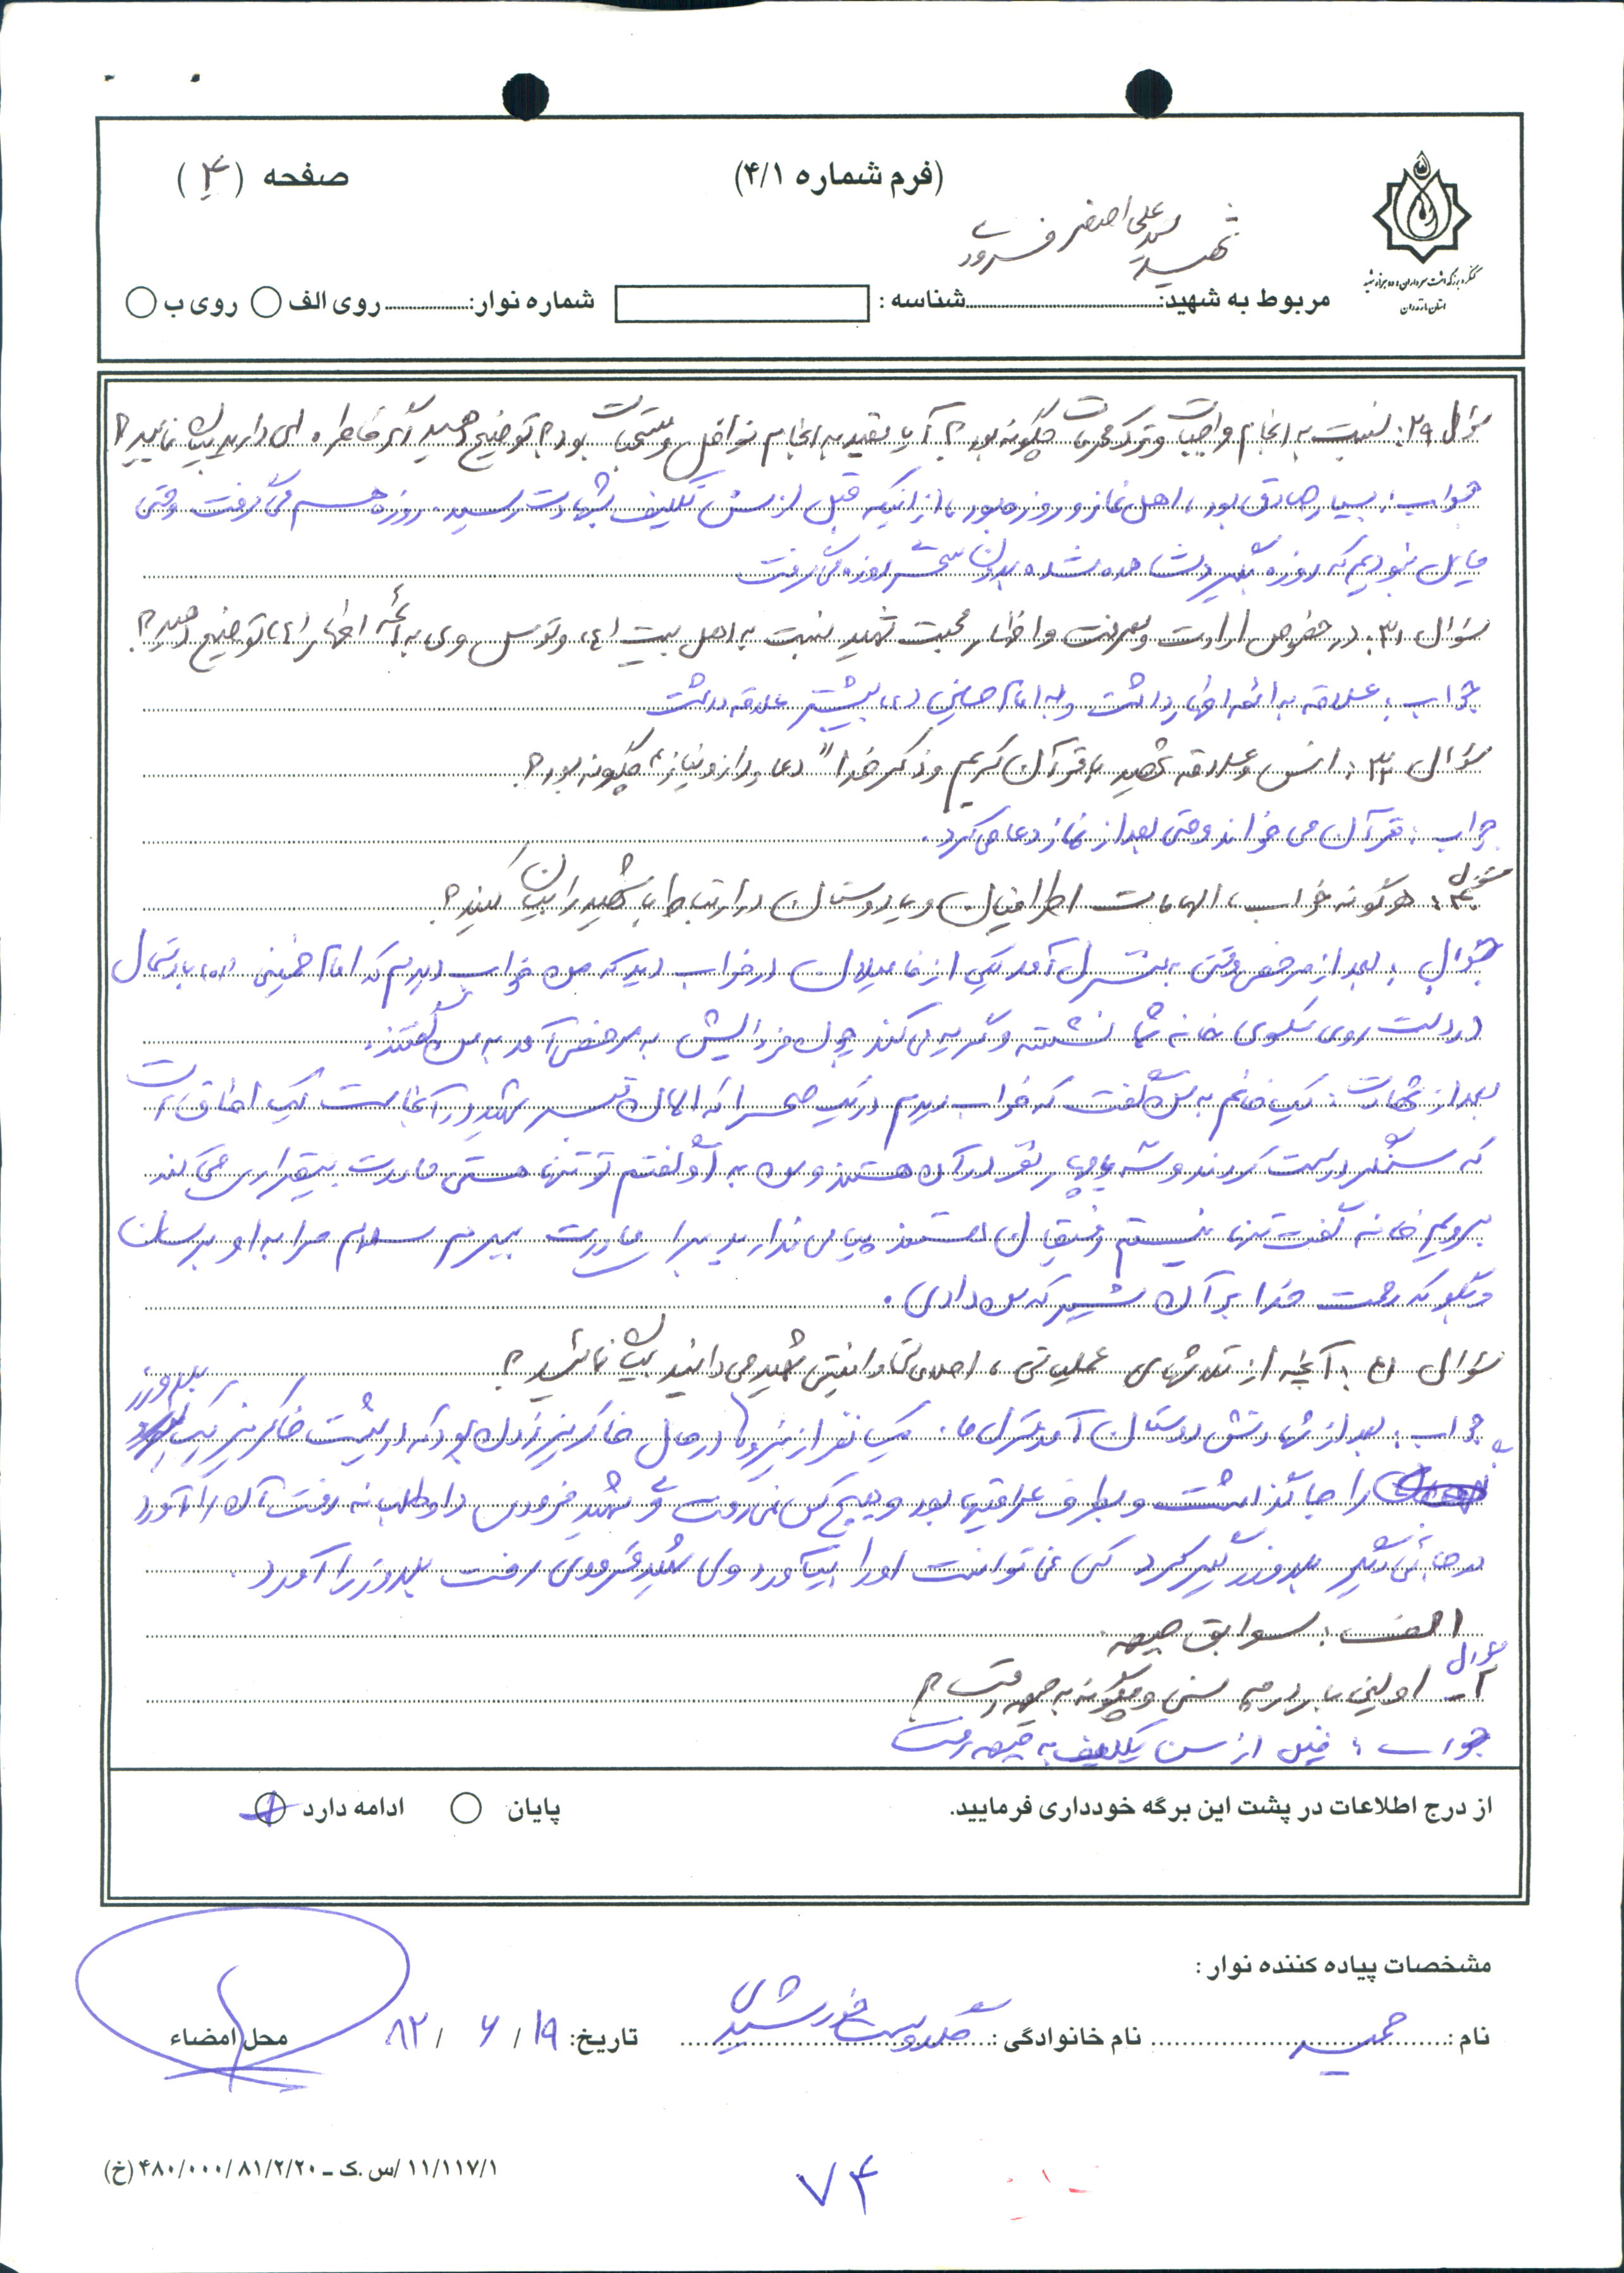 (فرم شماره ۴/۱)
صفحه (۴)
شهید سید علی اصغر فسرودی
کنگره بزرگداشت سرداران و ده هزار شهید
استان مازندران
مربوط به شهید: شناسه : شماره نوار: روی الف روی ب
سؤال ۲۹: نسبت به انجام واجبات و ترک محرمات چگونه بود؟ آیا مقید به انجام نوافل و مستحبات بود؟ توضیح دهید اگر خاطره ای دارید بیان نمائید؟
جواب: بسیار صادق بود، اهل نماز و روزه بود، از اینکه قبل از سن تکلیف بشهادت رسید. روزه هم می گرفت وقتی
مایل نبودیم که روزه بگیرد مشاهده شده بدون سحر روزه می گرفت
سؤال ۳۱: در خصوص ارادت و معرفت و اظهار محبت شهید نسبت به اهل بیت (ع) و توسل وی به ائمه اطهار (ع) توضیح دهید؟
جواب: علاقه به ائمه اطهار داشت و به امام حسین (ع) بیشتر علاقه داشت
سؤال ۳۲: انس و علاقه شهید با قرآن کریم و ذکر خدا "دعا و راز و نیاز" چگونه بود؟
جواب: قرآن می خواند وحتی بعد از نماز دعا می کرد.
سؤال : هرگونه خواب، الهامات اطرافیان و یا دوستان در ارتباط با شهید را بیان کنید؟
جواب: بعد از مرخصی وقتی به منزل آمد یکی از فامیلان در خواب دید که من خواب دیدم که امام خمینی (ره) با دستمال
در دست روی سکوی خانه شما نشسته و گریه می کند چون فردایش به مرخصی آمد به من گفتند.
بعد از شهادت: یک خانم به من گفت که خواب دیدم در یک صحرا که الان قبر شهید در آنجاست یک اطاقی است
که سنگر درست کردند و سه یا چهار نفر در آن هستند و من به آقا گفتم تو تنها هستی مادرت بیقراری می کند
برویم خانه گفت تنها نیستم رفیقان هستند پیامی ندارید برای مادرت ببرم سلام مرا به او برسان
و بگو که رحمت خدا بر آن شیر که من دادی.
سؤال ۴۱: آنچه از تلاشهای عملیاتی، اطلاعاتی و امنیتی شهید می دانید بیان نمائید؟
جواب: بعد از شهادتش دوستان آمد منزل ما. یک نفر از نیروها در حال خاکریز زدن بود که در پشت خاکریز یک بلدوزر
را جا گذاشت و بطرف عراقیها بود و هیچ کس نمی رفت و شهید فسرودی داوطلبانه رفت آن را آورد
در جائی دیگر بلدوزر گیر کرد کسی نمی توانست او را بیاورد ولی شهید فسرودی رفت بلدوزر را آورد.
الف: سوابق جبهه
سؤال ۲- اولین بار در چه سنی و چگونه به جبهه رفت؟
جواب: قبل از سن تکلیف به جبهه رفت
از درج اطلاعات در پشت این برگه خودداری فرمایید.
پایان ادامه دارد
مشخصات پیاده کننده نوار :
نام : حمید نام خانوادگی : خورشیدی تاریخ: ۱۹ / ۶ / ۸۲ محل امضاء
۷۴
۱۱/۱۱۷/۱/س.ک ـ ۴۸۰/۰۰۰/۸۱/۲/۲۰ (خ)